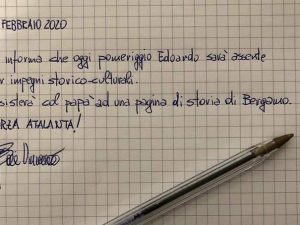 FEBBRAIO 2020
informa che oggi pomeriggio Edoardo sarà assente
r impegni storico-culturali.
sisterà col papà ad una pagina di storia di Bergamo.
RZA ATALANTA!